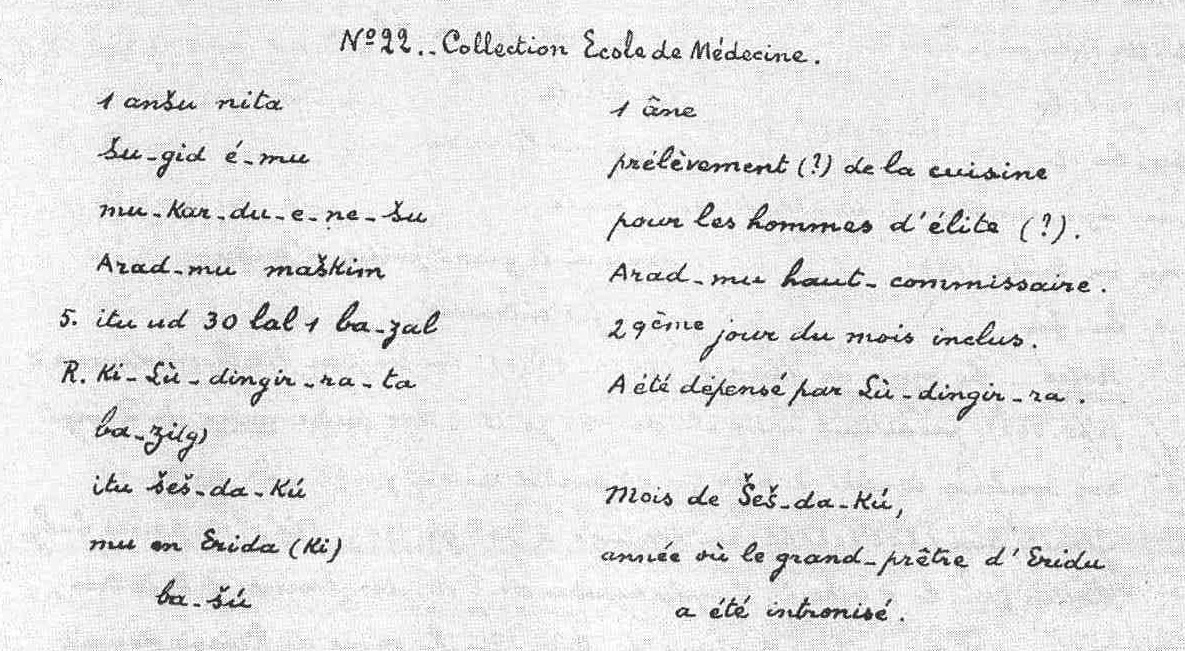 Nº 22.. Collection Ecole de Médecine.
1 anšu nita	1 âne
šu-gid é-mu	prélèvement (?) de la cuisine
mu-kar-du-e-ne-šu	pour les hommes d'élite (?).
Arad-mu maškim	Arad-mu haut-commissaire.
5. itu ud 30 lal 1 ba-zal	29ème jour du mois inclus.
R. Ki-Lù-dingir-ra-ta	A été dépensé par Lù-dingir-ra.
ba-zi(g)
itu šeš-da-kú	Mois de Šeš-da-kú,
mu en Erida (ki)	année où le grand-prêtre d'Eridu
ba-šú	a été intronisé.